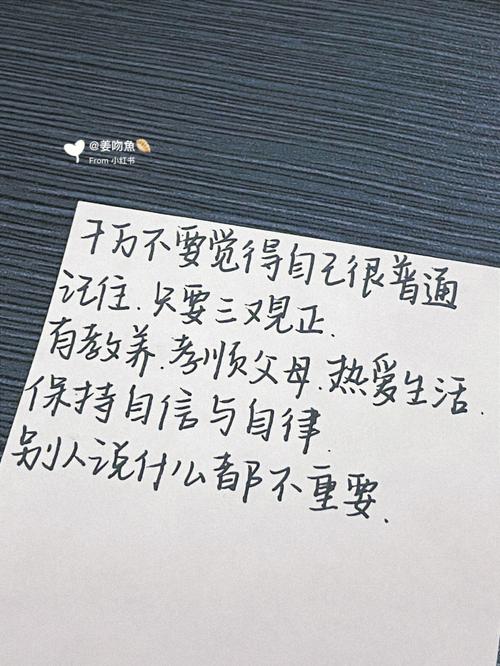 @姜吻魚
From 小红书
千万不要觉得自己很普通
记住.只要三观正.
有教养.孝顺父母.热爱生活.
保持自信与自律.
别人说什么都不重要.